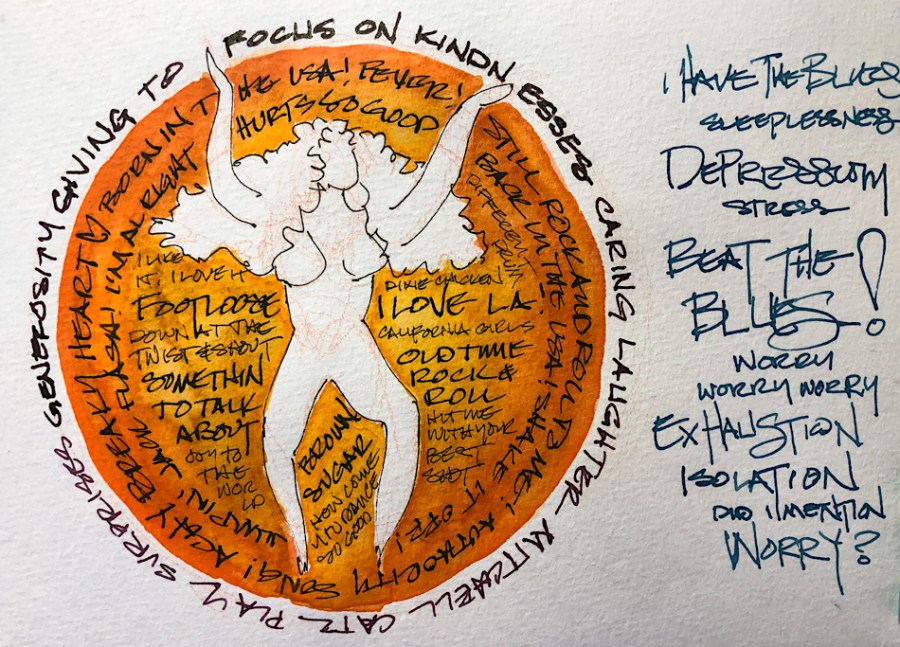 FOCUS ON KINDNESSES CARING LAUGHTER MITCHELL CATZ PLAY SURPRISES GENEROSITY GIVING TO
ACHY BREAKY HEART BORN IN THE USA! FEVER!
STILL ROCK AND ROLL TO ME! AUTHORITY SONG!
JUMPIN' JACK FLASH! I'M ALRIGHT
HURTS SO GOOD
BACK IN THE USA! SHAKE IT OFF!
DIFFERENT
I LIKE
IT, I LOVE IT
FOOTLOOSE
DOWN AT THE
TWIST & SHOUT
SOMETHIN
TO TALK
ABOUT
JOY TO
THE
WOR
LD
DIXIE CHICKEN
I LOVE LA
CALIFORNIA GIRLS
OLD TIME
ROCK &
ROLL
HIT ME
WITH YOUR
BEST
SHOT
BROWN
SUGAR
HOW COME
U DANCE
SO GOOD
I HAVE THE BLUES
SLEEPLESSNESS
DEPRESSION
STRESS
BEAT THE
BLUES!
WORRY
WORRY WORRY
EXHAUSTION
ISOLATION
DID I MENTION
WORRY?